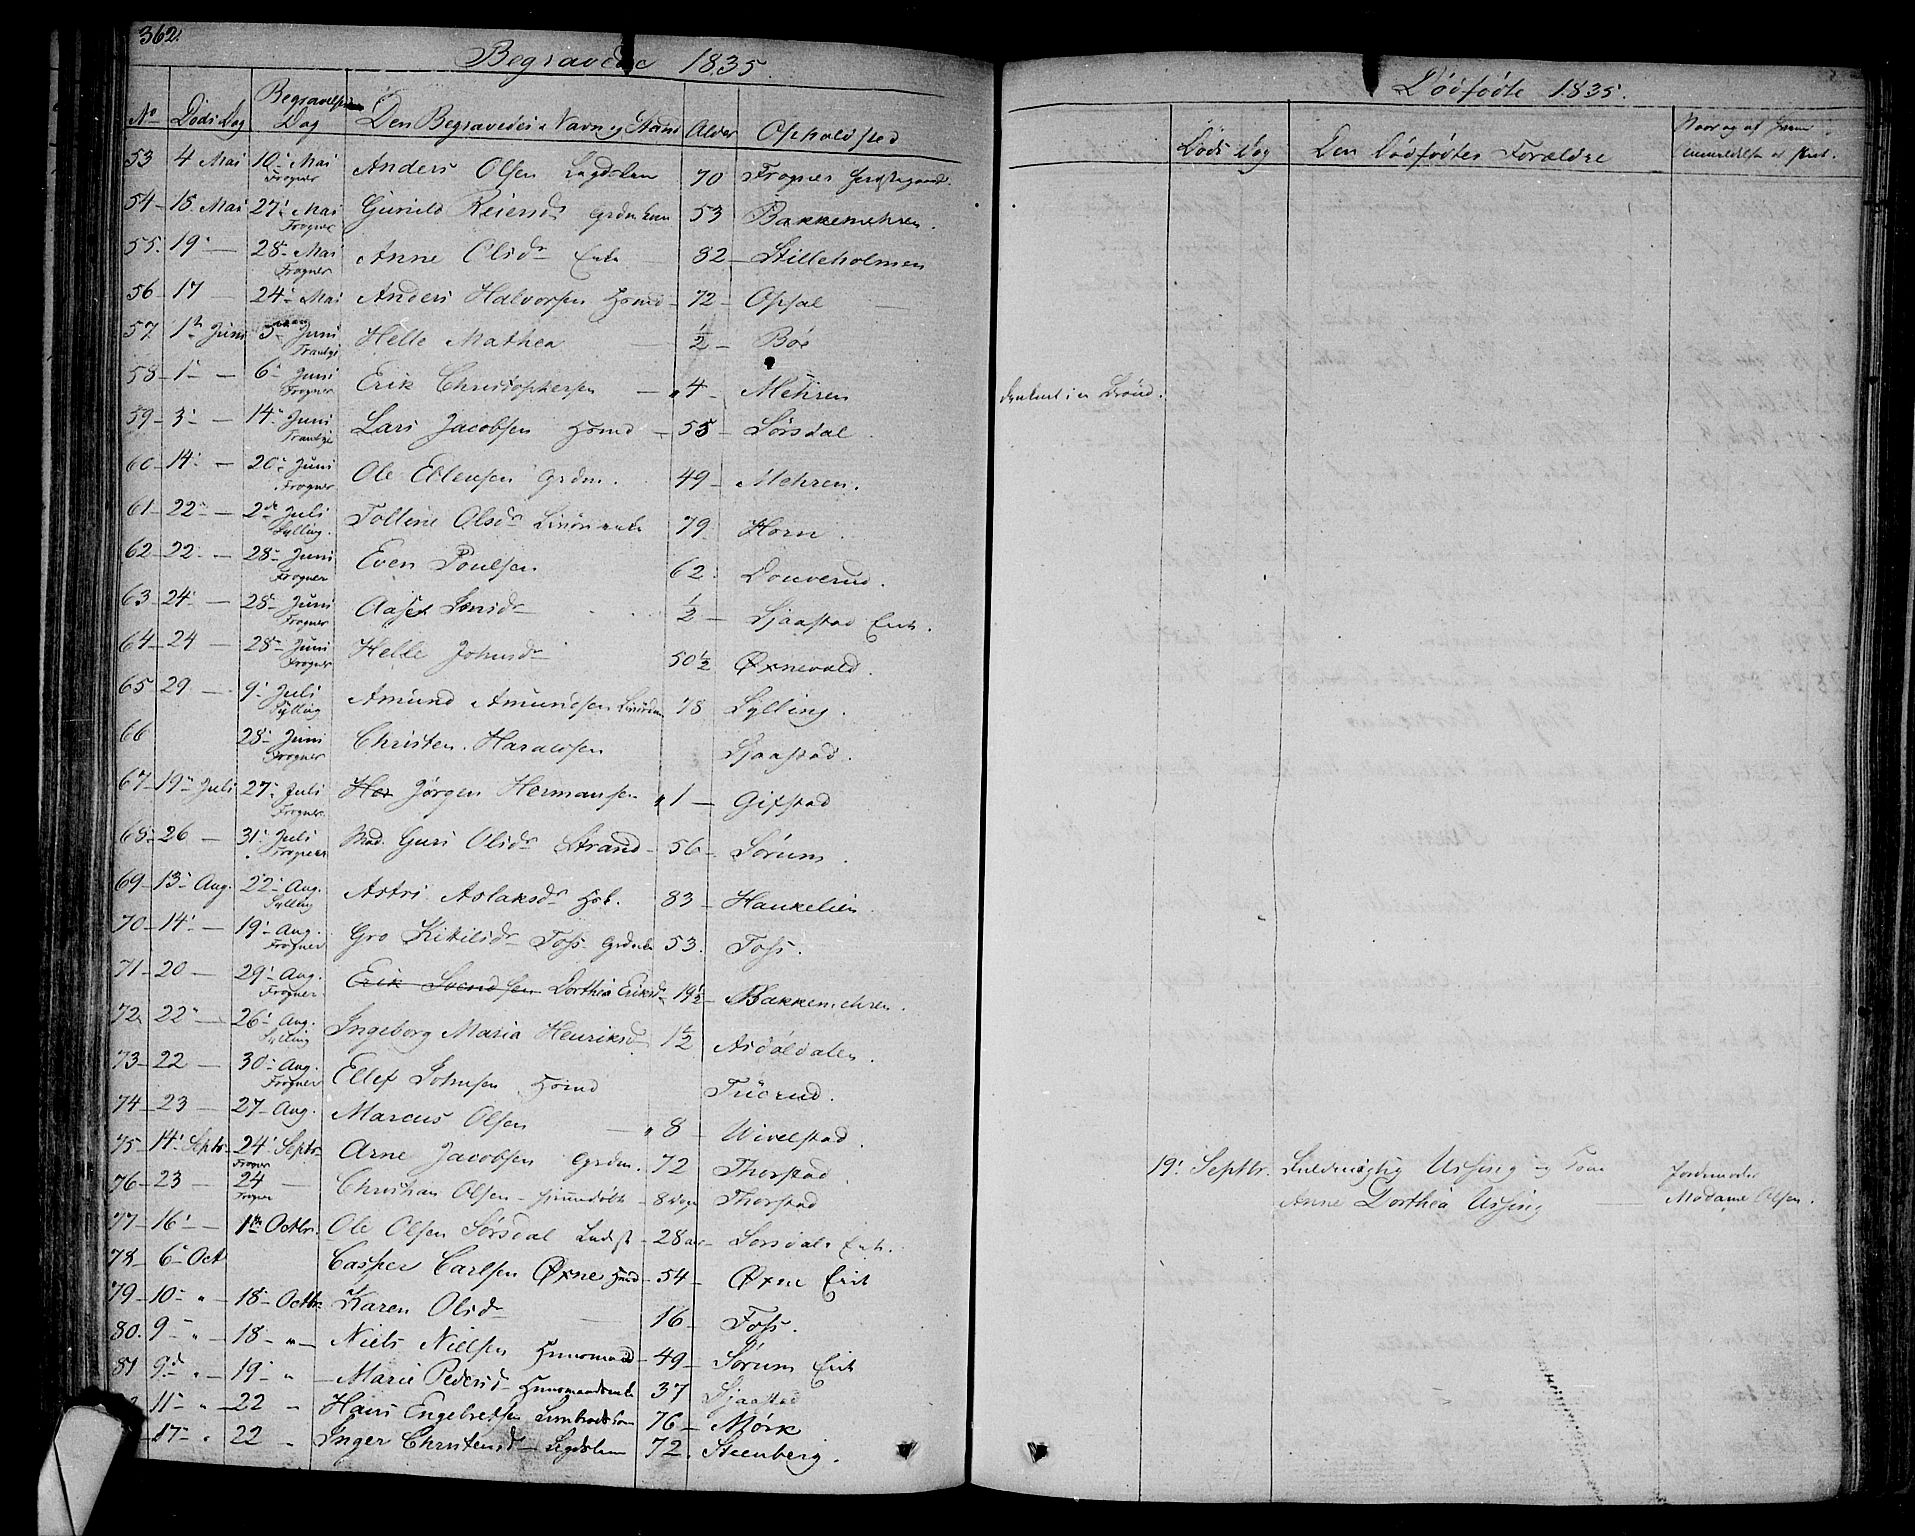 362.
Begravede 1835
No Döds Dag Begravelses Dag Den Begravedes Navn og Stand Alder Opholdsted
53 4 Mai 10 Mai Frogner Anders Olsen Lægdslem 70 Frogner
54 15 Mai 27 Mai Frogner Gunild Reiersd 53 Bakkemehren.
55. 19 — 28 Mai Frogner Anne Olsd Enke 82 Stilleholmen
56 17 — 24 Mai Anders Halvorsen Hsmd 72 Opsal
57 1 Juni 5 Juni Tranbye Helle Mathea ½ Bøe
58 1 — 6 Juni Frogner Erik Christophersen 4 Mehren
59 3 — 14 Juni Tranbye Lars Jacobsen Hsmd 55 Sørsdal
60 14 — 20 Juni Frogner Ole Ellensen Grdm. 49 Mehren.
61 22 — 2de Juli Sylling. Tollene Olsd 79 Horne.
62 22 — 28 Juni Frogner Even Poulsen 62 Douverud.
63 24 — 28 Juni Frogner ½ Sjaastad Eie.
64 24 — 28 Juni Frogner Helle Johnsd 50½ Øxnevald.
65 29 — 9 Juli Sylling Amund Amundsen 78 Sylling.
66 28 Juni Frogner Christen Haraldsen Sjaastad.
67 19 Juli 27 Juli Frogner Her Jørgen Hermansen 1 — Gifstad
68 26 — 31 Juli Frogner Mad. Guri Olsd Strand 56 Sørum.
69 13 Aug. 22 Aug. Sylling Astri Aslaksd 83 Haukelien
70 14 — 19 Aug. Frogner Gro Kittilsd Foss 53. Foss.
71 20 — 29 Aug. Frogner Erik Svendsen Dorthea Eriksd 19½ Bakkemehren.
72 22 — 26 Aug. Sylling Ingeborg Maria Henriksd 1½ Asdøldalen.
73 22 — 30 Aug. Frogner Ellef Johnsen Hsmd Tuerud.
74 23 — 27 Aug. Marcus Olsen 8 Wivelstad.
75 14 Septr. 24 Septr. Frogner Arne Jacobsen Grdm. 72 Thorstad.
76 23 — 24 — Frogner Christian Olsen 8 Dage Thorstad
77 16 — 1 Octbr. Ole Olsen Sørsdal 28 aar Sørsdals Eie.
78 6 Oct Casper Carlsen Øxne Hsmd 54 Øxne Eie
79 10 „ 18 Octbr. Karen Olsd 16 Foss.
80. 9 „ 18 „ Niels Nielsen Huusmand 49 Sørum Eie
81 9 „ 19 „ Marie Pedersd Huusmandsenke 37 Sjaastad
11 „ 22 „ Hans Engebretsen 76 Mørk
17 „ 22 „ Inger Christensd Lægdslem 72. Steenberg.
Dödföte 1835.
Döds Dag Den Dödfödtes Forældre
druknet i en Brönd.
19 Septbr. Ussing og Kone Anne Dorthea Ussing Jordemoder Madame Olsen.